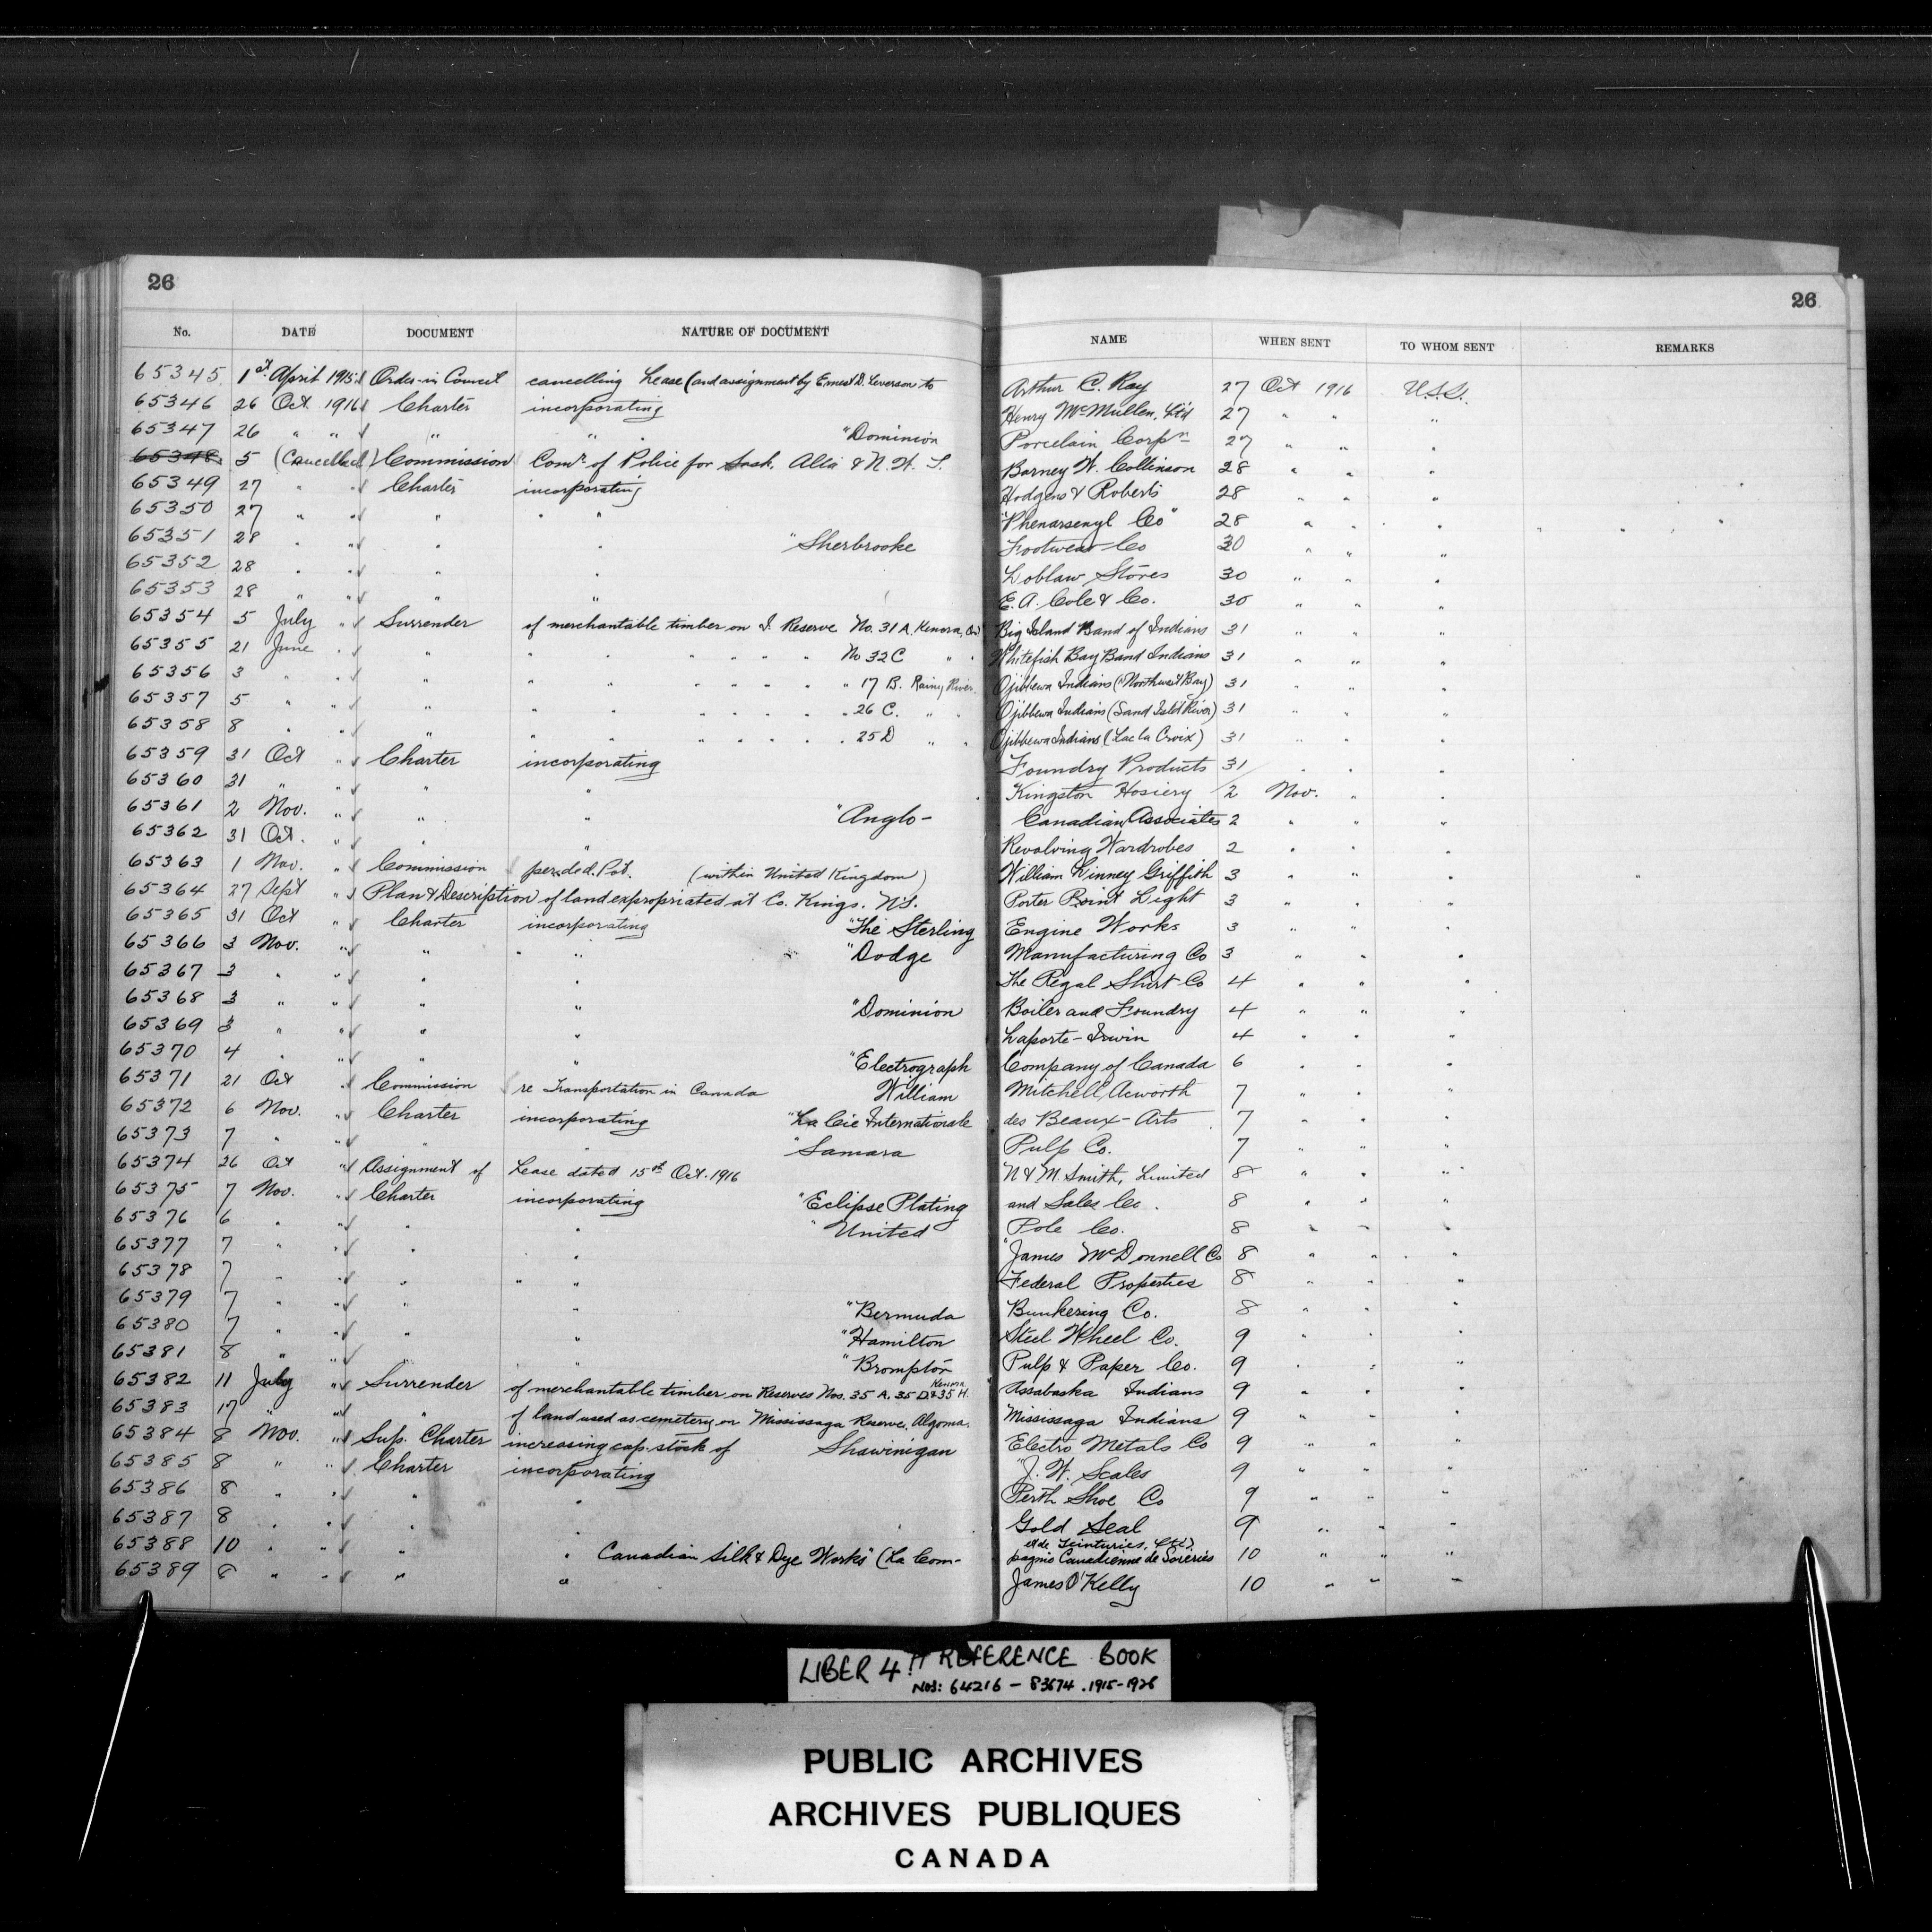 26
26
No. DATE DOCUMENT NATURE OF DOCUMENT NAME WHEN SENT TO WHOM SENT REMARKS
65345 1st April 1915 Order-in Council cancelling Lease (and assignment by Ernest D. Leverson to Arthur C. Ray 27 Oct 1916 U.S.S.
65346 26 Oct. 1916 Charter incorporating Henry McMullen, Ltd 27 " " "
65347 26 " " " " "Dominion Porcelain Corpn 27 " " "
65348 5 (Cancelled) Commission Comr of Police for Sask. Alta & N. W. T. Barney W. Collinson 28 " " "
65349 27 " " Charter incorporating Hodgens & Roberts 28 " " "
65350 27 " " " " "Phenarsenyl Co" 28 " " "
65351 28 " " " " "Sherbrooke Footwear Co 30 " " "
65352 28 " " " " Loblaw Stores 30 " " "
65353 28 " " " " E. A. Cole & Co. 30 " " "
65354 5 July " Surrender of merchantable timber on I. Reserve No. 31 A, Kenora, Ont Big Island Band of Indians 31 " " "
65355 21 June " " " " " " " " No 32 C " " Whitefish Bay Band Indians 31 " " "
65356 3 " " " " " " " " " " 17 B. Rainy River. Ojibbewa Indians ("Northwest Bay) 31 " " "
65357 5 " " " " " " " " " 26 C. " " Ojibbewa Indians (Sand Isld River) 31 " " "
65358 8 " " " " " " " " " 25 D " " Ojibbewa Indians (Lac la Croix) 31 " " "
65359 31 Oct " Charter incorporating Foundry Products 31 " " "
65360 31 " " " " Kingston Hosiery 2 Nov. " "
65361 2 Nov. " " " "Anglo- Canadian Associates 2 " " "
65362 31 Oct. " " " Revolving Wardrobes 2 " " "
65363 1 Nov. " Commission per. ded. Pot. (within United Kingdom) William Linney Griffith 3 " " "
65364 27 Sept " Plan & Description of land expropriated at Co. Kings. N.S. Porter Point Light 3 " " "
65365 31 Oct " Charter incorporating "The Sterling Engine Works 3 " " "
65366 3 Nov. " " " "Dodge Manufacturing Co 3 " " "
65367 3 " " " " The Regal Shirt Co 4 " " "
65368 3 " " " " "Dominion Boiler and Foundry 4 " " "
65369 3 " " " " Laporte-Irwin 4 " " "
65370 4 " " " " "Electrograph Company of Canada 6 " " "
65371 21 Oct " Commission re Transportation in Canada William Mitchell Acworth 7 " " "
65372 6 Nov. " Charter incorporating "La Cie Internationale des Beaux-Arts 7 " " "
65373 7 " " " " "Samara Pulp Co. 7 " " "
65374 26 Oct " Assignment of Lease dated 15th Oct. 1916 N & M. Smith, Limited 8 " " "
65375 7 Nov. " Charter incorporating "Eclipse Plating and Sales Co. 8 " " "
65376 6 " " " " "United Pole Co. 8 " " "
65377 7 " " " " "James McDonnell Co 8 " " "
65378 7 " " " " Federal Properties 8 " " "
65379 7 " " " " "Bermuda Bunkering Co. 8 " " "
65380 7 " " " " "Hamilton Steel Wheel Co. 9 " " "
65381 8 " " " " "Brompton Pulp & Paper Co. 9 " " "
65382 11 July " Surrender of merchantable timber on Reserves Nos. 35 A. 35 D. & 35 H. Kenora Assabaska Indians 9 " " "
65383 17 " " " of land used as cemetery on Mississaga Reserve, Algoma. Mississaga Indians 9 " " "
65384 8 Nov. " Sup. Charter increasing cap. stock of Shawinigan Electro Metals Co 9 " " "
65385 8 " " Charter incorporating "J. W. Scales 9 " " "
65386 8 " " " " Perth Shoe Co 9 " " "
65387 8 " " " " Gold Seal 9 " " "
65388 10 " " " " Canadian Silk & Dye Works" (La Com- pagnie Canadienne de Soieries et de Teinturies, Ltd). 10 " " "
65389 8 " " " " James O'Kelly 10 " " "
LIBER 4 !! REFERENCE BOOK
NOS: 64216 - 83674 . 1915-1926
PUBLIC ARCHIVES
ARCHIVES PUBLIQUES
CANADA